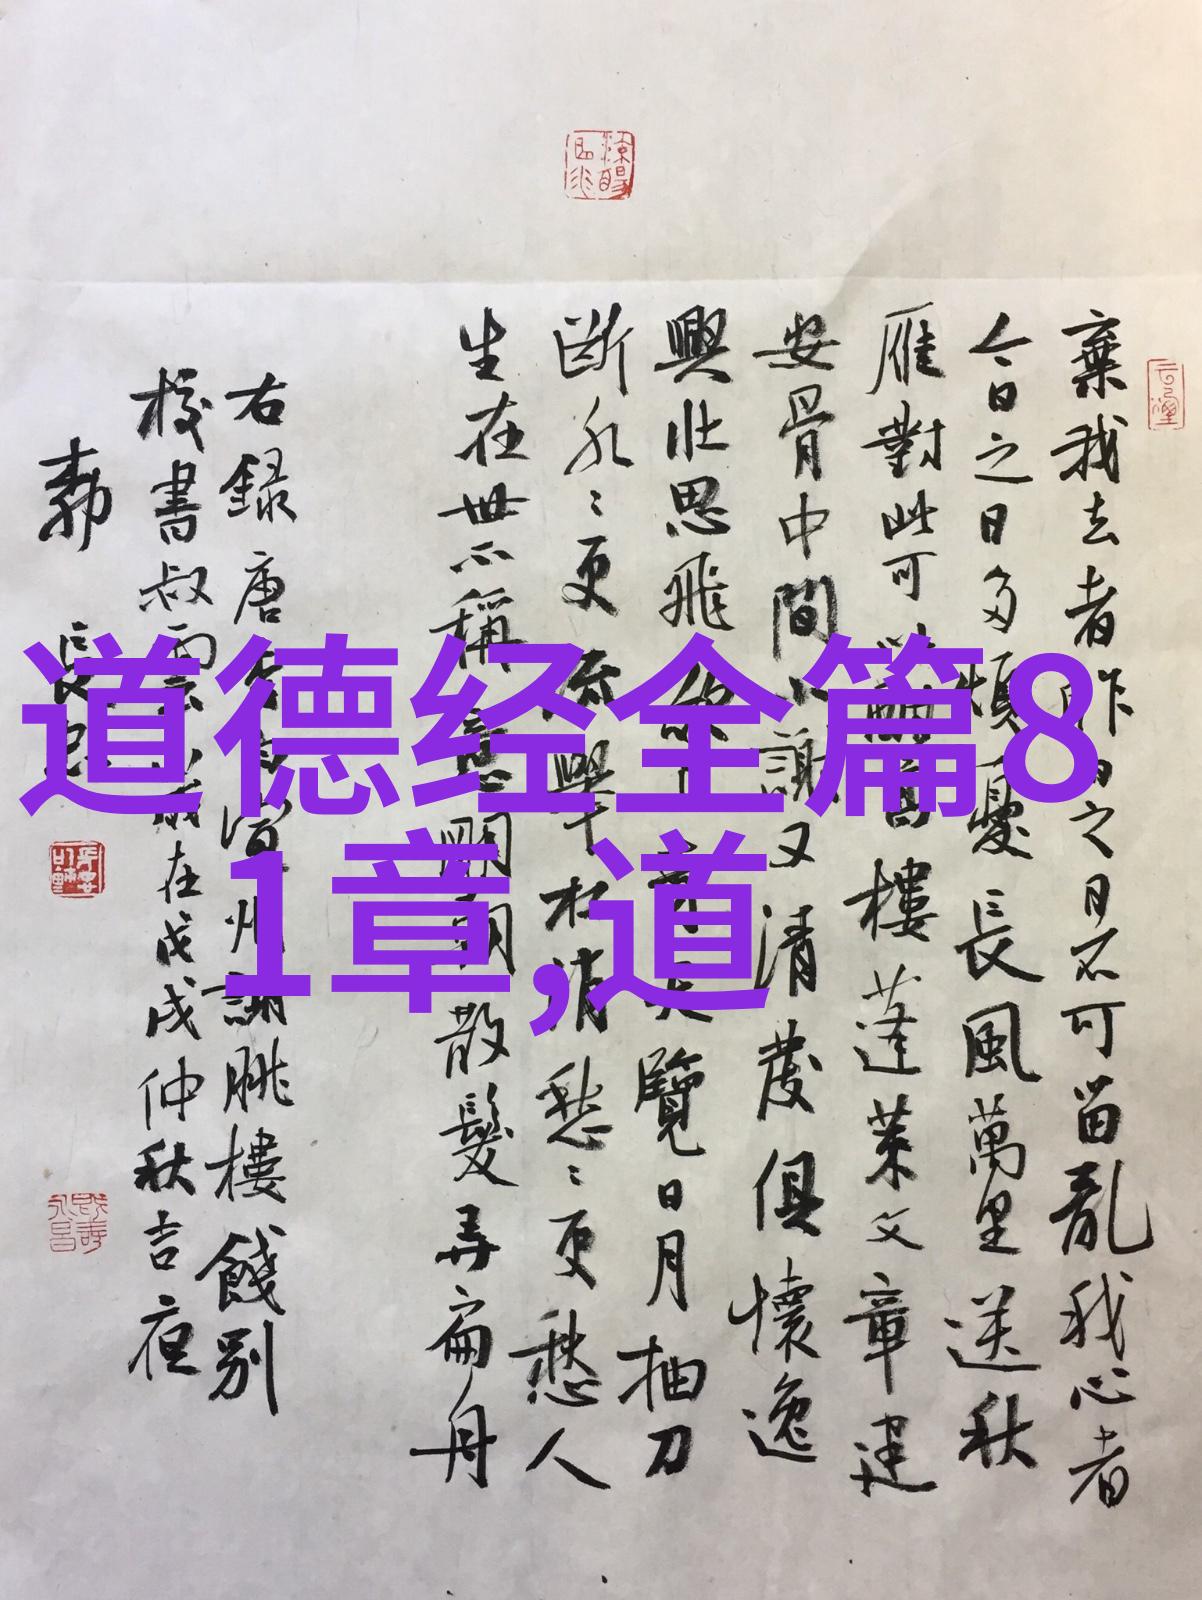 道德经全篇8
1章,道
棄我去者昨日之日不可留亂我心者
今日之日多煩憂長風萬里送秋
雁對此可以酣高樓蓬萊文章建
安骨中間小謝又清發俱懷逸
興壯思飛欲上青天覽日月抽刀
断水〻更流舉杯消愁〻更愁人
生在世不稱意明朝散髮弄扁舟
右録唐李白宣州謝朓樓餞別
校書叔雲歲在戊戌仲秋吉夜